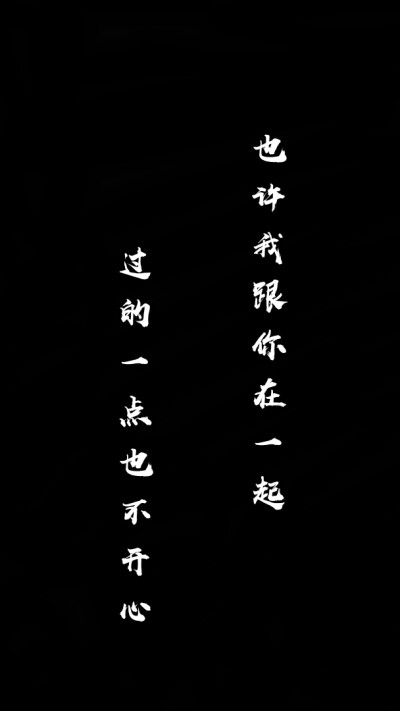 也许我跟你在一起
过的一点也不开心